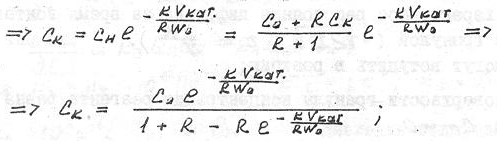 => Cк = Cн e^(-KVкат./RW₀) = (C₀ + RCк)/(R + 1) e^(-KVкат./RW₀) =>
=> Cк = (C₀ e^(-KVкат./RW₀))/(1 + R - R e^(-KVкат./RW₀)) ;